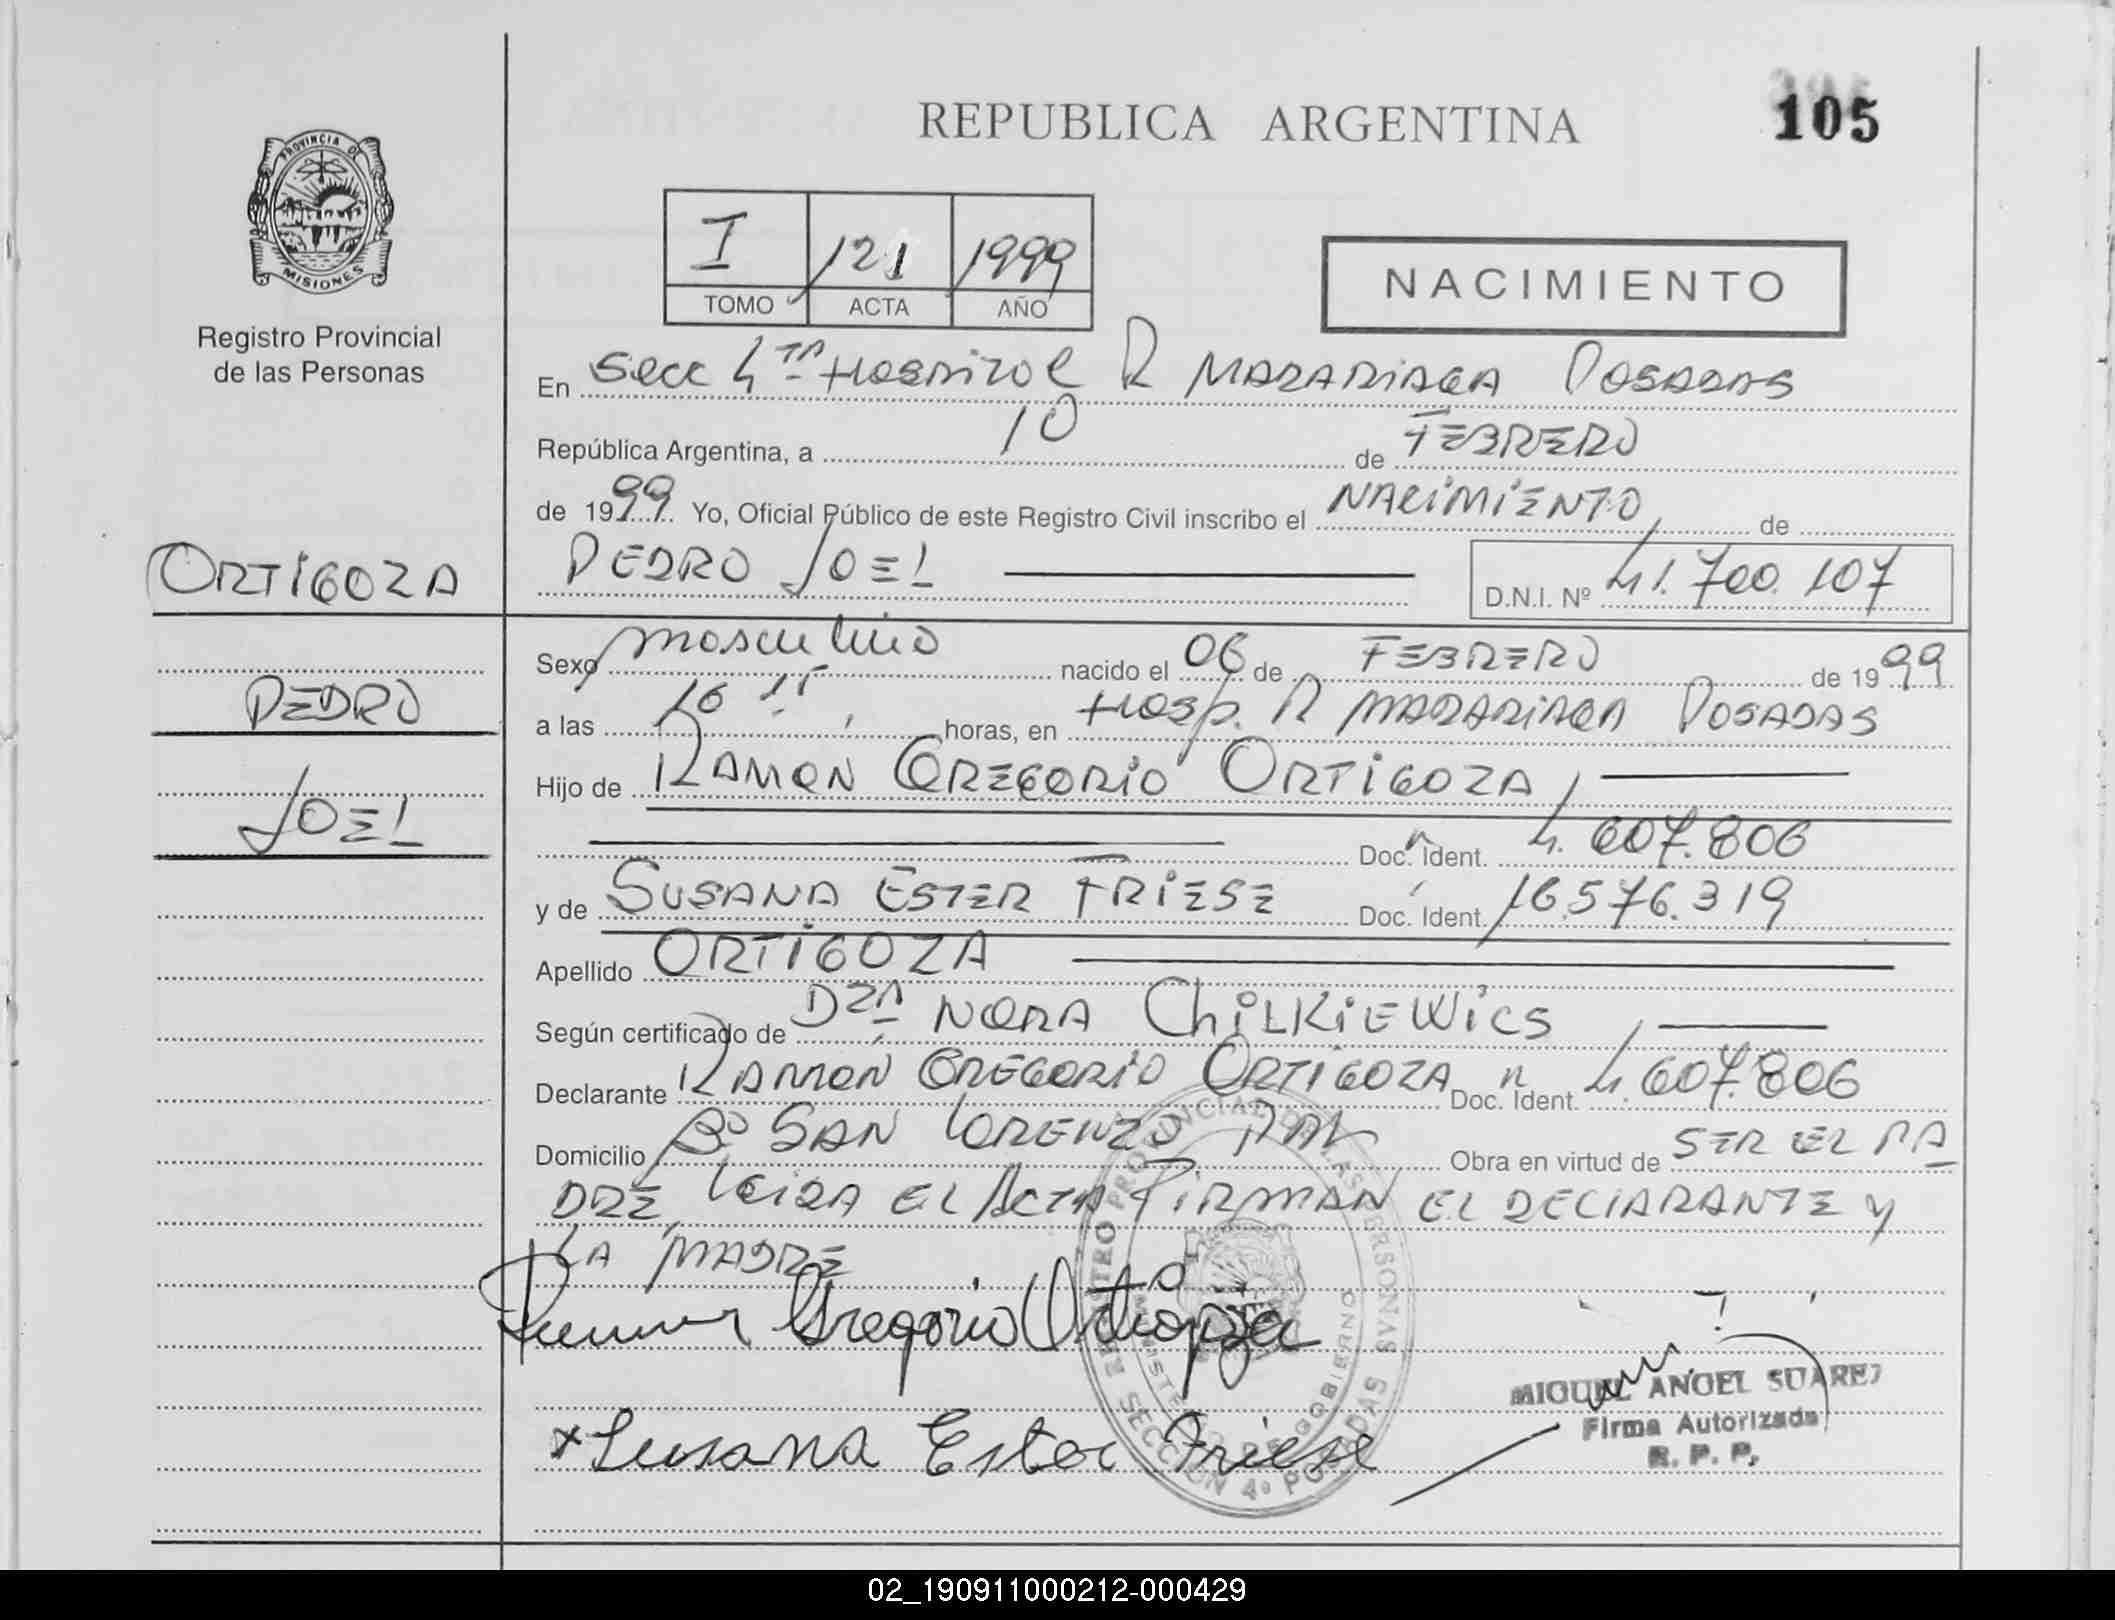 REPUBLICA ARGENTINA
105
PROVINCIA DE
MISIONES
Registro Provincial
de las Personas
I 121 1999
TOMO ACTA AÑO
NACIMIENTO
En Secc 4ta Hospital R MADARIAGA POSADAS
República Argentina, a 10 de FEBRERO
de 1999. Yo, Oficial Público de este Registro Civil inscribo el NACIMIENTO de
ORTIGOZA
PEDRO JOEL
D.N.I. Nº 41.700.107
Sexo masculino nacido el 06 de FEBRERO de 1999
PEDRO
a las 16 horas, en Hosp. R MADARIAGA POSADAS
Hijo de RAMON GREGORIO ORTIGOZA
JOEL
Doc. Ident. 4.607.806
y de SUSANA ESTER FRIESE Doc. Ident. 16.576.319
Apellido ORTIGOZA
Según certificado de Dra NORA ChILKiEWics
Declarante RAMON GREGORIO ORTIGOZA Doc. Ident. 4.607.806
Domicilio Bº SAN LORENZO Obra en virtud de SER EL PA
DRE, LEIDA EL ACTA FIRMAN EL DECLARANTE y
LA MADRE
Ramon Gregorio Ortigoza
REGISTRO PROVINCIAL DE LAS PERSONAS
MINISTERIO DE GOBIERNO
SECCION 4º POSADAS
MIGUEL ANGEL SUAREZ
Firma Autorizada
R. P. P.
x Susana Ester Friese
02_190911000212-000429